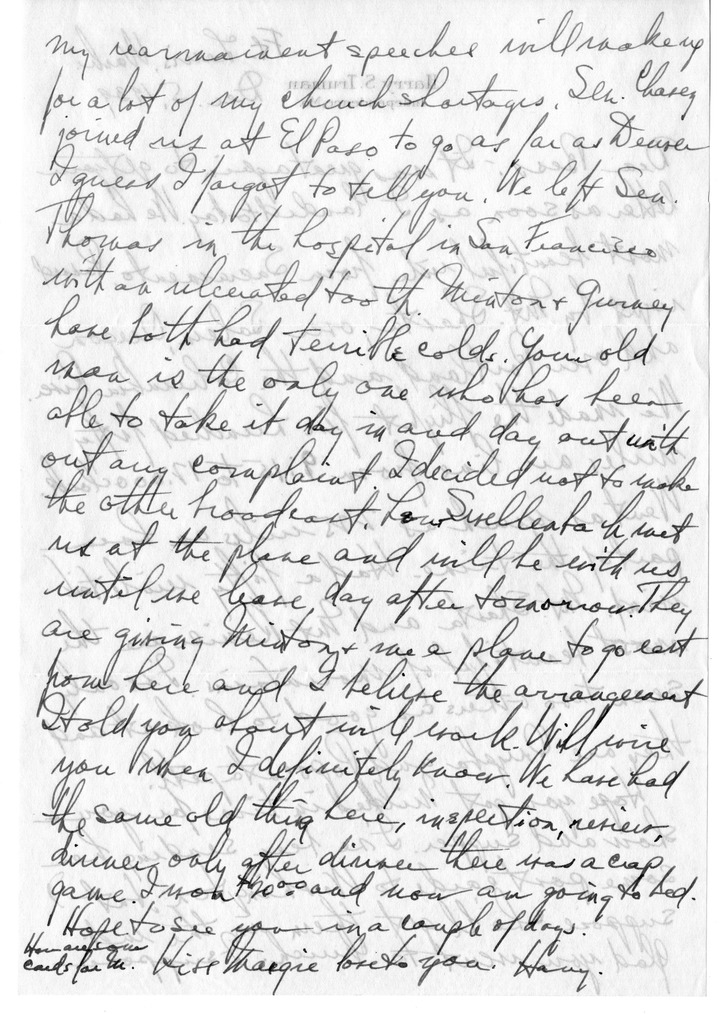 my rearmament speeches will make up
for a lot of my church shortages. Sen. Chavez
joined us at El Paso to go as far as Denver
I guess I forgot to tell you. We left Sen.
Thomas in the hospital in San Francisco
with an ulcerated tooth. Minton & Gurney
have both had terrible colds. Your old
man is the only one who has been
able to take it day in and day out with
out any complaint. I decided not to make
the other broadcast. Lew Swellenbach met
us at the plane and will be with us
until we leave day after tomorrow. They
are giving Minton & me a plane to go east
from here and I believe the arrangement
I told you about will work. Will wire
you when I definitely know. We have had
the same old thing here, inspection, review,
dinner, only after dinner there was a crap
game. I won and now am going to bed.
Hope to see you in a couple of days.
Here are some
cards for M. Kiss Margie love to you. Harry.